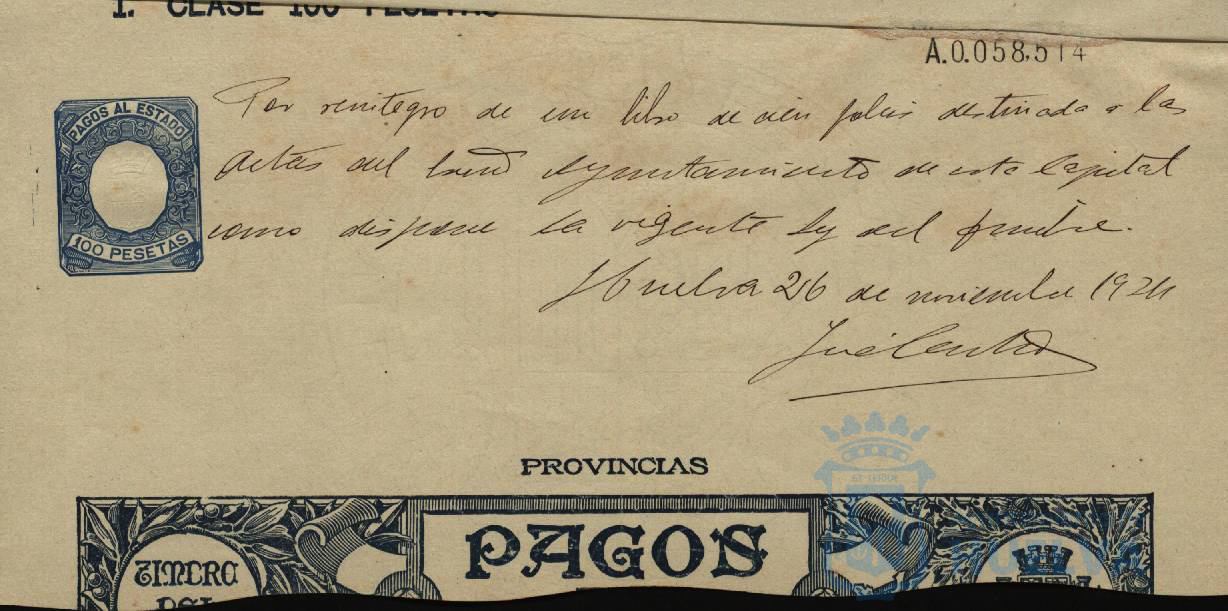 1. CLASE 100 PESETAS
A.0.058,514
PAGOS AL ESTADO
100 PESETAS
Por reintegro de un libro de cien folios destinado a las
actas del Ayuntamiento de esta Capital
como dispone la vigente ley del timbre.
Huelva 26 de noviembre 1924
José
PROVINCIAS
PAGOS
TIMBRE
DEL